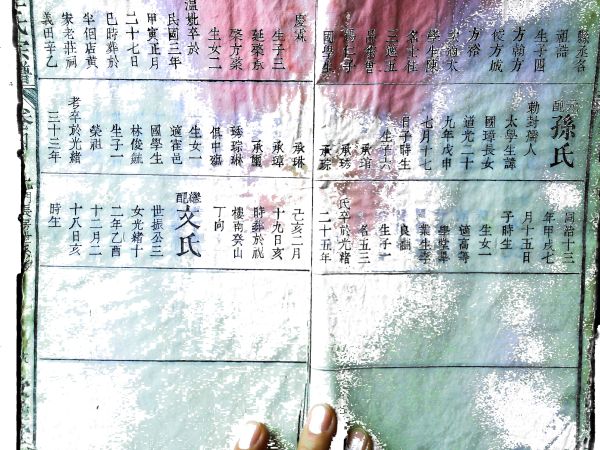 祖誥
生子四
方翰方
俊方城
方裕
適太
學生陳
名士杜
三適五
國學生
慶霖
生子三
延榮承
榮方榮
生女二
溫妣卒於
民國三年
甲寅正月
二十七日
巳時葬於
半個店黃
宋老莊祠
義田辛乙
元配
孫氏
勅封孺人
太學生諱
國璋長女
道光二十
九年戊申
七月十七
日子時生
生子六
承琯
承琇
承琮
承琳
承璋
承璽
臻琮琳
俱中殤
生女一
適霍邑
國學生
林俊毓
生子一
榮祖
考卒於光緒
三十三年
同治十三
年甲戌七
月十五日
子時生
生女一
適高等
學堂畢
業生李
良調
生子一
名五三
氏卒於光緒
二十五年
己亥二月
十九日亥
時葬於祝
樓南癸山
丁向
繼配
文氏
世振公三
女光緒十
二年乙酉
十二月二
十八日亥
時生